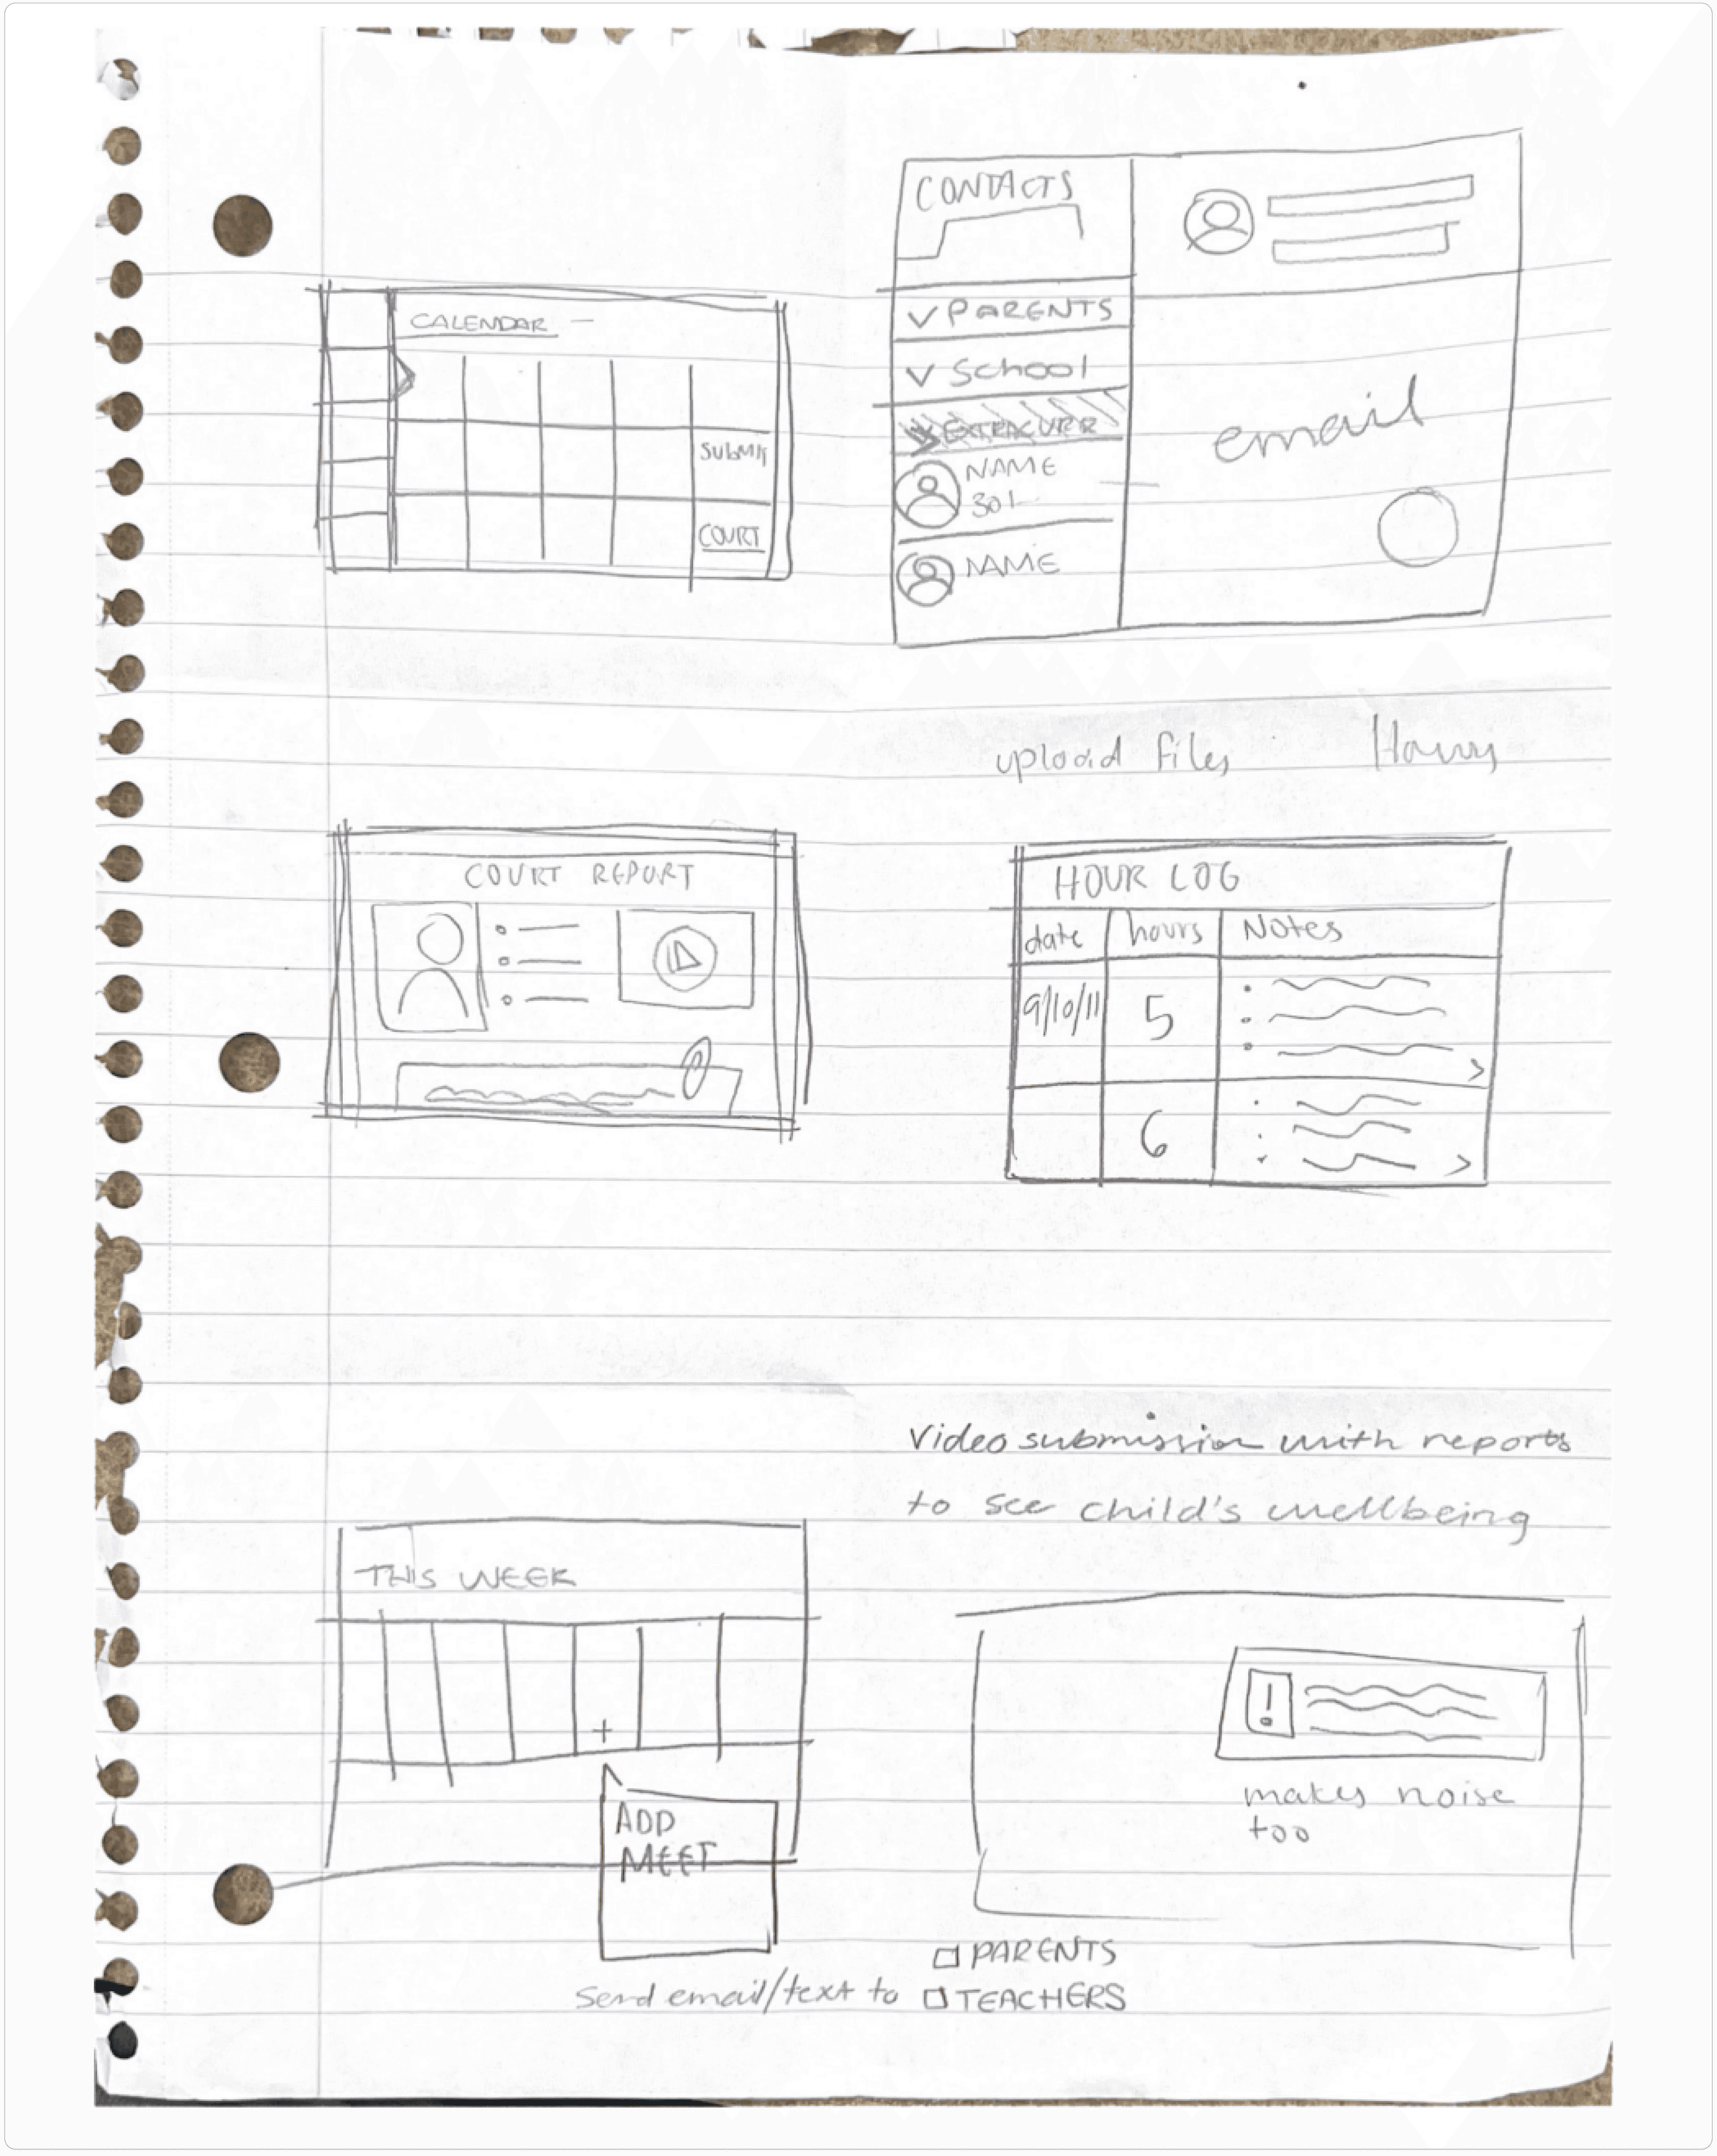 CALENDAR –
SUBMIT
COURT
CONTACTS
PARENTS
School
EXTRACURR
NAME
301-
NAME
email
upload files
COURT REPORT
HOUR LOG
date hours Notes
9/10/11 5
6
Video submission with reports
to see child's wellbeing
THIS WEEK
+
ADD
MEET
!
makes noise
too
PARENTS
Send email/text to TEACHERS